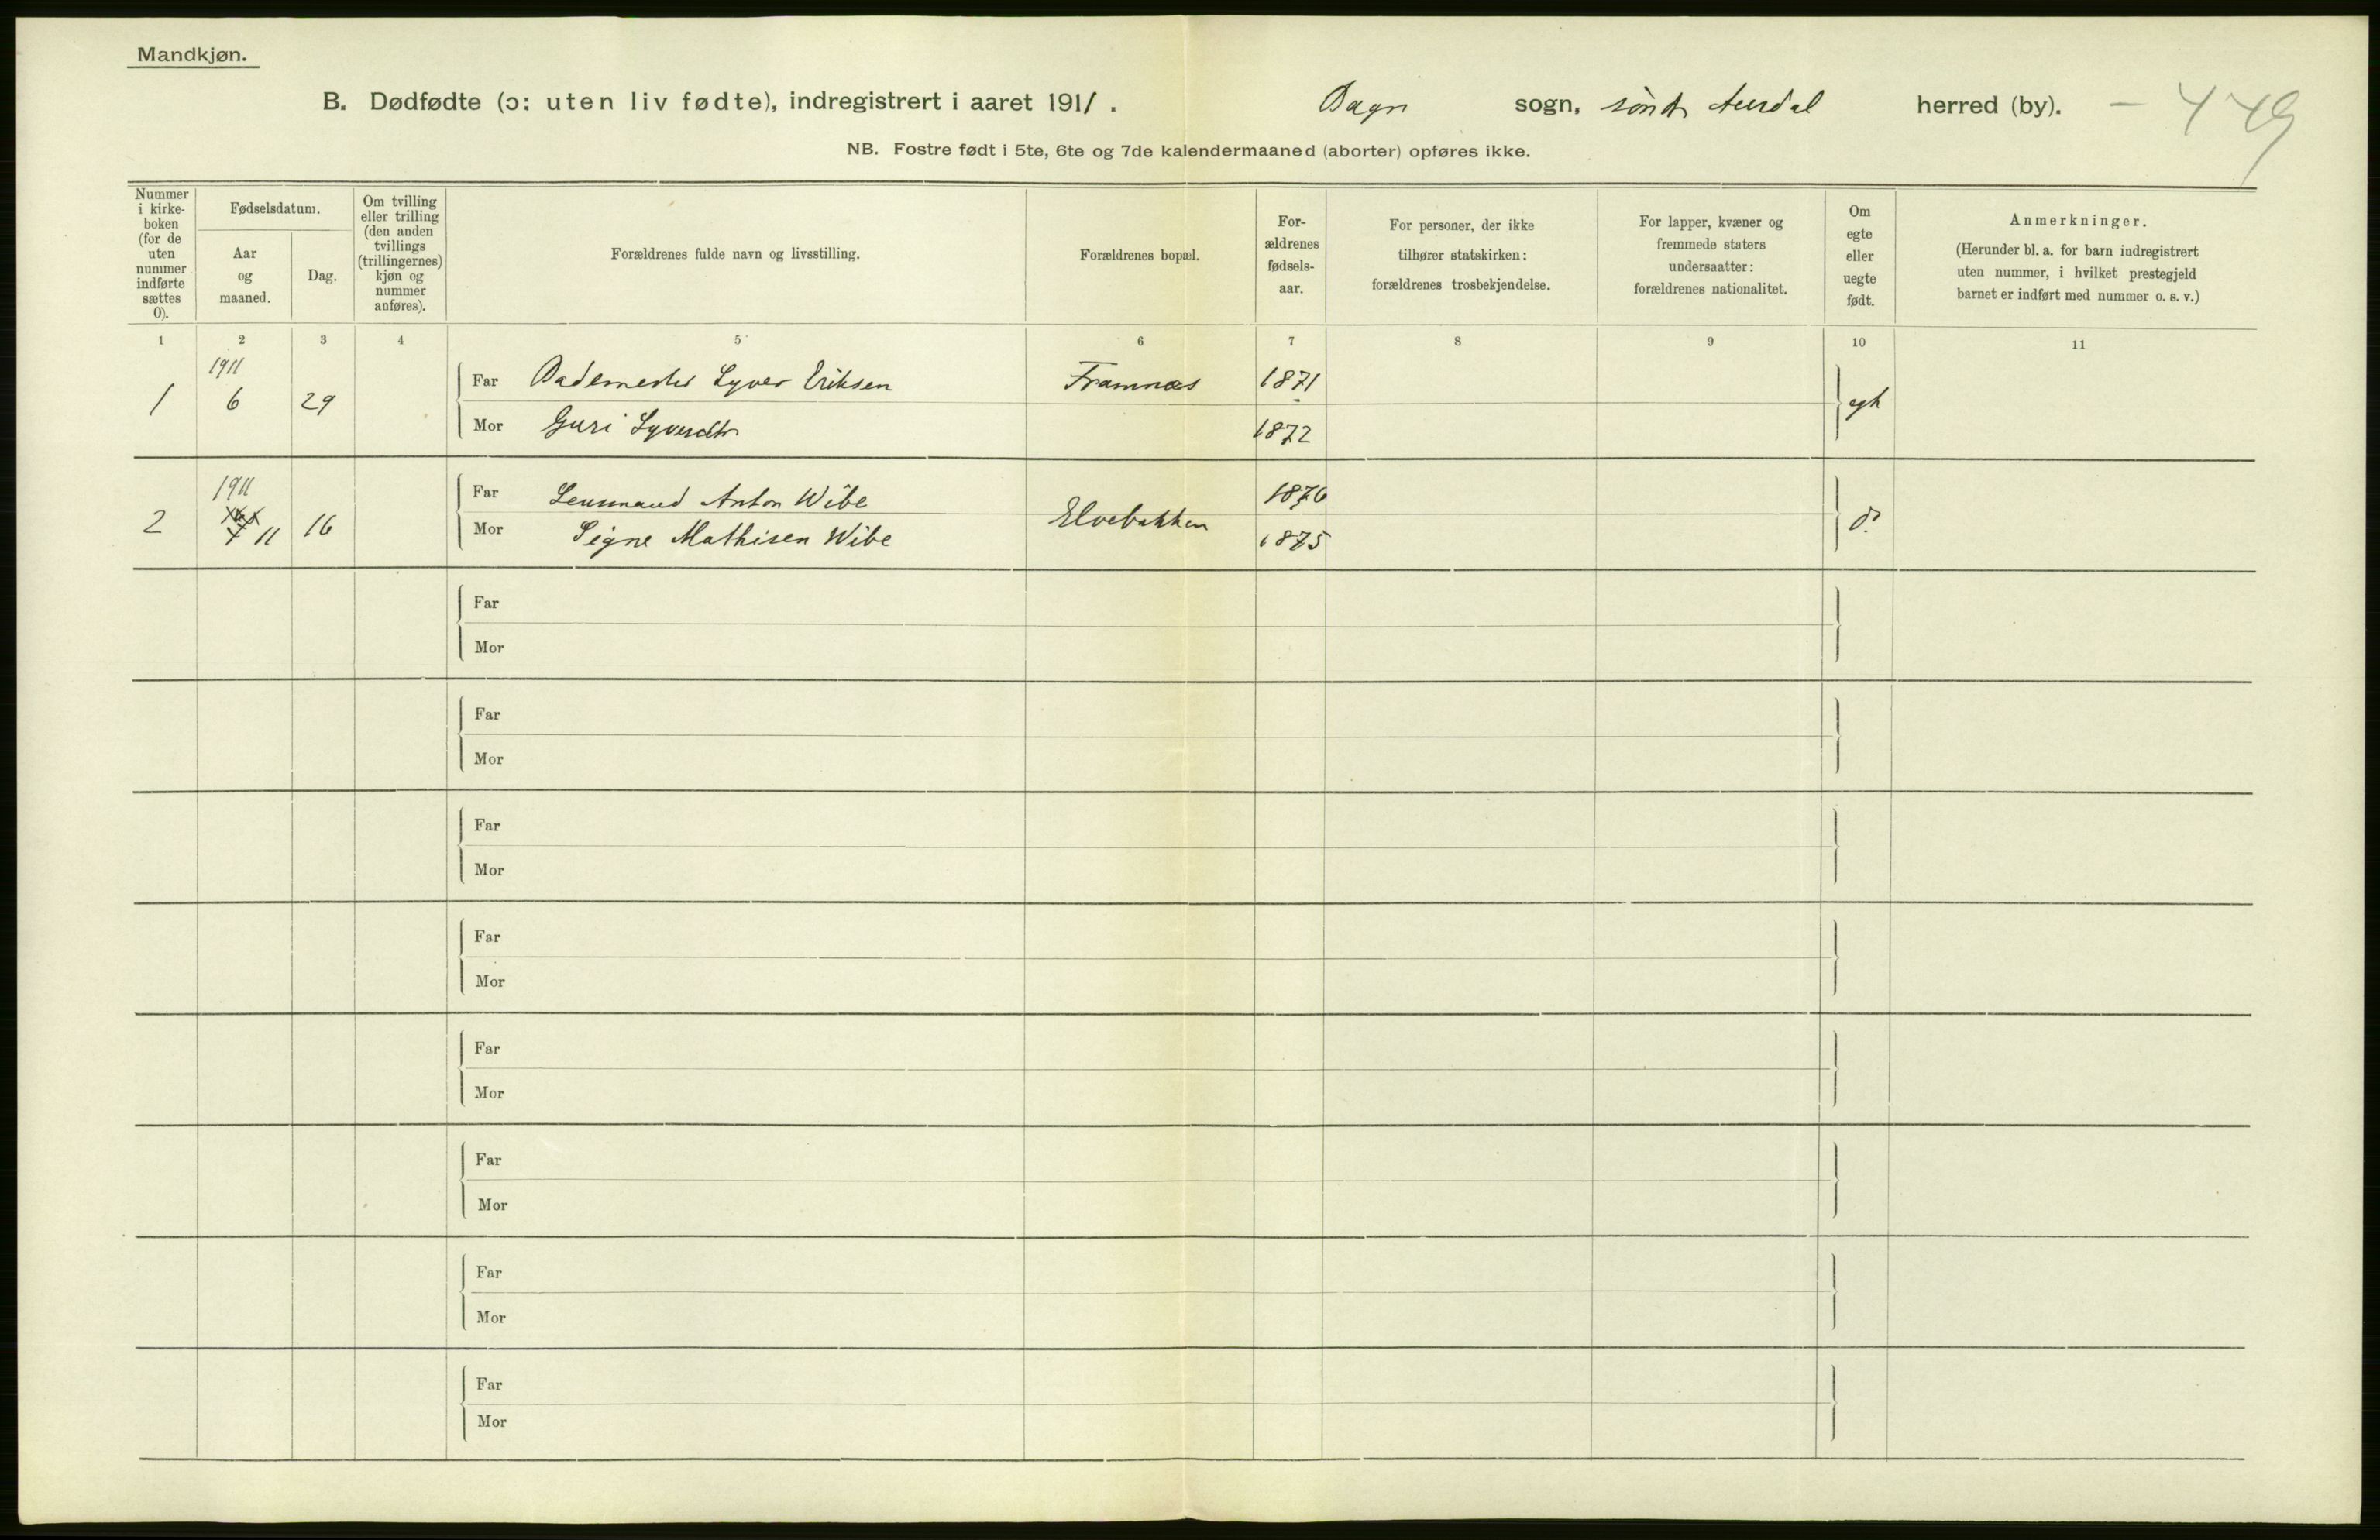 Mandkjøn.
B. Dødfødte (ɔ: uten liv fødte), indregistrert i aaret 1911. Bagn sogn, søndr Aurdal herred (by). – 449
NB. Fostre født i 5te, 6te og 7de kalendermaaned (aborter) opføres ikke.
Nummer
i kirke-
boken
(for de
uten
nummer
indførte
sættes
0).
Fødselsdatum.
Aar
og
maaned.
Dag.
Om tvilling
eller trilling
(den anden
tvillings
(trillingernes)
kjøn og
nummer
anføres).
Forældrenes fulde navn og livsstilling.
Forældrenes bopæl.
For-
ældrenes
fødsels-
aar.
For personer, der ikke
tilhører statskirken:
forældrenes trosbekjendelse.
For lapper, kvæner og
fremmede staters
undersaatter:
forældrenes nationalitet.
Om
egte
eller
uegte
født.
Anmerkninger.
(Herunder bl. a. for barn indregistrert
uten nummer, i hvilket prestegjeld
barnet er indført med nummer o. s. v.)
1 2 3 4 5 6 7 8 9 10 11
1911
Far Bademester Syver Eriksen Framnæs 1871
1 6 29 egte
Mor Guri Syversdtr 1872
1911
Far Lensmand Anton Wibe 1876
2 11 16 Elvebakken do
Mor Signe Mathisen Wibe 1875
Far
Mor
Far
Mor
Far
Mor
Far
Mor
Far
Mor
Far
Mor
Far
Mor
Far
Mor